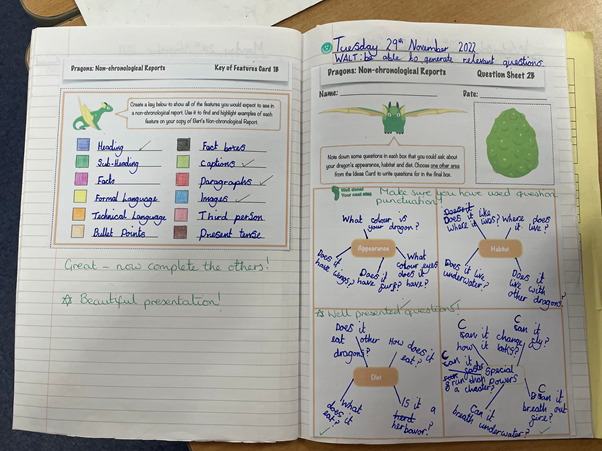 Dragons: Non-chronological Reports Key of Features Card 1B
Create a key below to show all of the features you would expect to see in
a non-chronological report. Use it to find and highlight examples of each
feature on your copy of Elen's Non-chronological Report
Heading
Sub-Heading
Facts
Formal Language
Technical Language
Bullet Points
Fact boxes
Captions
Paragraphs
Images
Third person
Present tense
Great - now complete the others!
Beautiful presentation!
Tuesday 29th November 2022
WALT: be able to generate relevant questions.
Dragons: Non-chronological Reports Question Sheet 2B
Name:
Date:
Note down some questions in each box that you could ask about
your dragon's appearance, habitat and diet. Choose one other area
from the Ideas Card to write questions for in the final box.
Well done!
Your next step
Make sure you have used question
punctuation!
What colour is
your dragon?
Appearance
Does it
have wings?
Does it
have fur?
What
colour eyes
does it
have?
Does it like
where it lives?
Where does
it live?
Habitat
Does it live
underwater?
Does it
live with
other dragons?
Well presented questions!
Does it
eat other
dragons?
How does it
eat?
Diet
What
does it
eat?
Is it a
herbavor?
Can it change
how it looks?
Can it fly?
Can it
run
than
a cheater?
Special
powers
Can it
breath underwater?
Can it
breath out
fire?